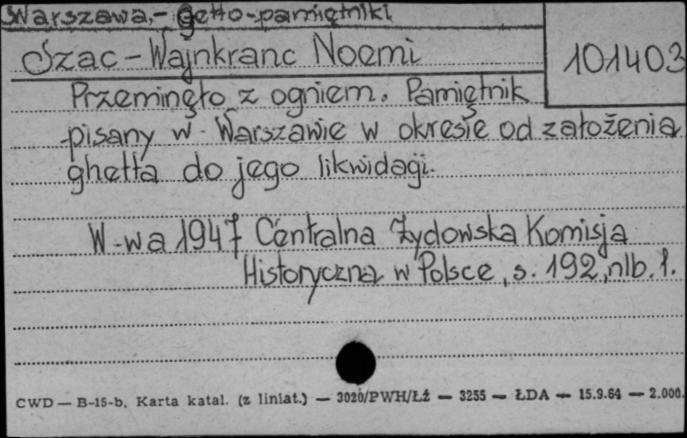 Warszawa,- getto-pamiętniki
Szac-Wajnkranc Noemi
101403
Przeminęło z ogniem. Pamiętnik
pisany w Warszawie w okresie od założenia
ghetta do jego likwidacji.
W-wa 1947 Centralna Żydowska Komisja
Historyczna w Polsce, s. 192, nlb. 1.
CWD — B-15-b. Karta katal. (z liniat.) — 3020/PWH/ŁŻ — 3255 — ŁDA — 15.9.64 — 2.000.